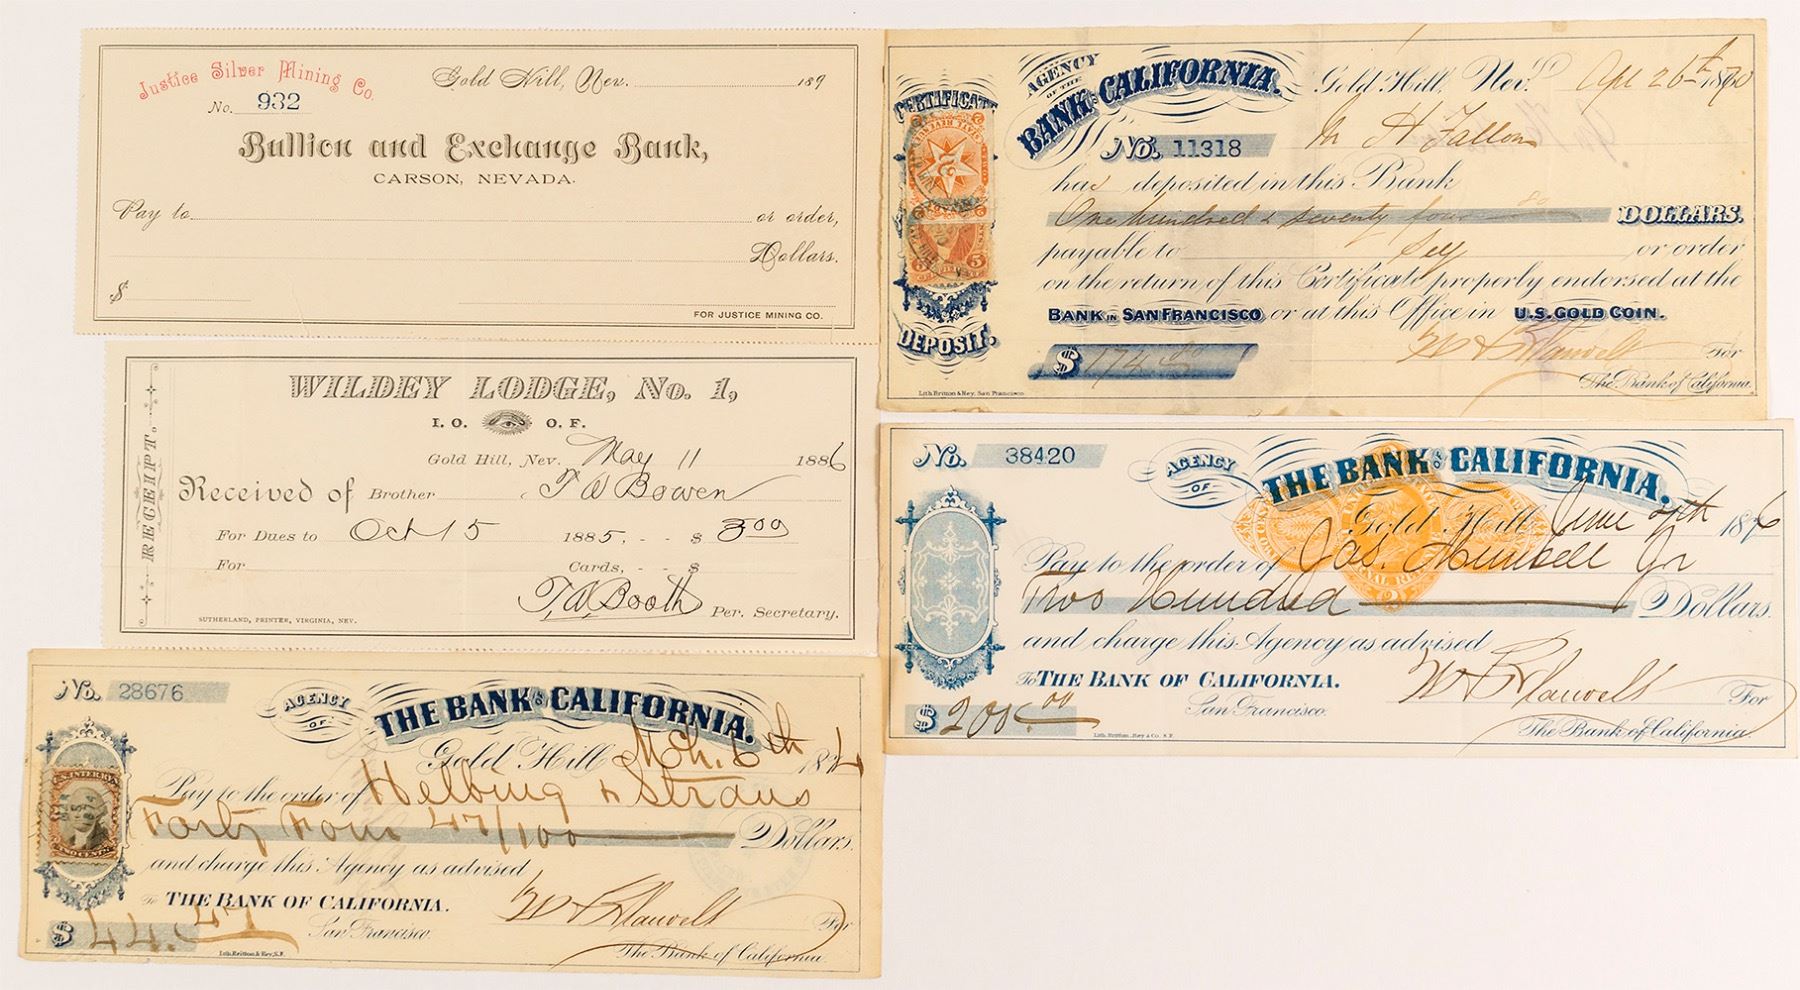 Justice Silver Mining Co.
Gold Hill, Nev. 189
No. 932
Bullion and Exchange Bank,
CARSON, NEVADA.
Pay to or order,
Dollars.
$
FOR JUSTICE MINING CO.
RECEIPT.
WILDEY LODGE, No. 1,
I. O. O. F.
Gold Hill, Nev. May 11 1886
Received of Brother T W Bowen
For Dues to Oct 15 1885, - - $ 3.00
For Cards, - - $
T. W. Booth Per. Secretary.
SUTHERLAND, PRINTER, VIRGINIA, NEV.
No. 28676
AGENCY OF THE BANK OF CALIFORNIA.
Gold Hill Mch. 6th 1874
Pay to the order of Helbing & Straus
Forty Four 47/100 Dollars.
and charge this Agency as advised
To THE BANK OF CALIFORNIA.
San Francisco.
For
$ 44.47
The Bank of California.
Lith. Britton & Rey, S.F.
U.S. INTER. REV.
TWO CENTS
CERTIFICATE
DEPOSIT.
AGENCY OF THE
BANK OF CALIFORNIA.
Gold Hill, Nev. Apl 26th 1870
No. 11318 M H Fallon
has deposited in this Bank
One hundred & seventy four 80 DOLLARS.
payable to Self or order
on the return of this Certificate properly endorsed at the
BANK IN SAN FRANCISCO or at this Office in U.S. GOLD COIN.
$ 174 80
For
The Bank of California.
Lith. Britton & Rey, San Francisco.
No. 38420
AGENCY OF THE BANK OF CALIFORNIA.
Gold Hill June 1876
Pay to the order of Jas. Jr
Two Hundred Dollars.
and charge this Agency as advised
To THE BANK OF CALIFORNIA.
San Francisco.
For
$ 200.00
The Bank of California.
Lith. Britton, Rey & Co. S.F.